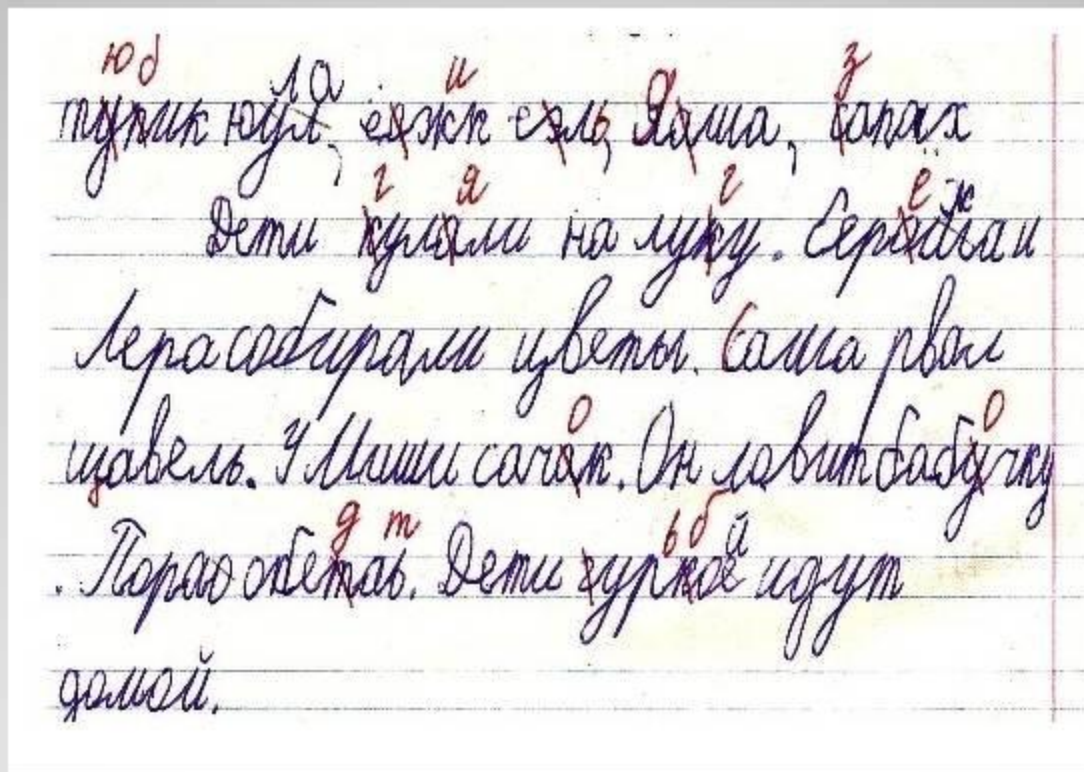 тупик юул, ла ёажк еэль, Яаша, сапах
Дети кулали на луку. Серёжа и
Лера собирали цветы. Саша рвал
щавель. У Миши сачак. Он ловит бабучку
. Пора обетаь. Дети гуркой идут
домой.